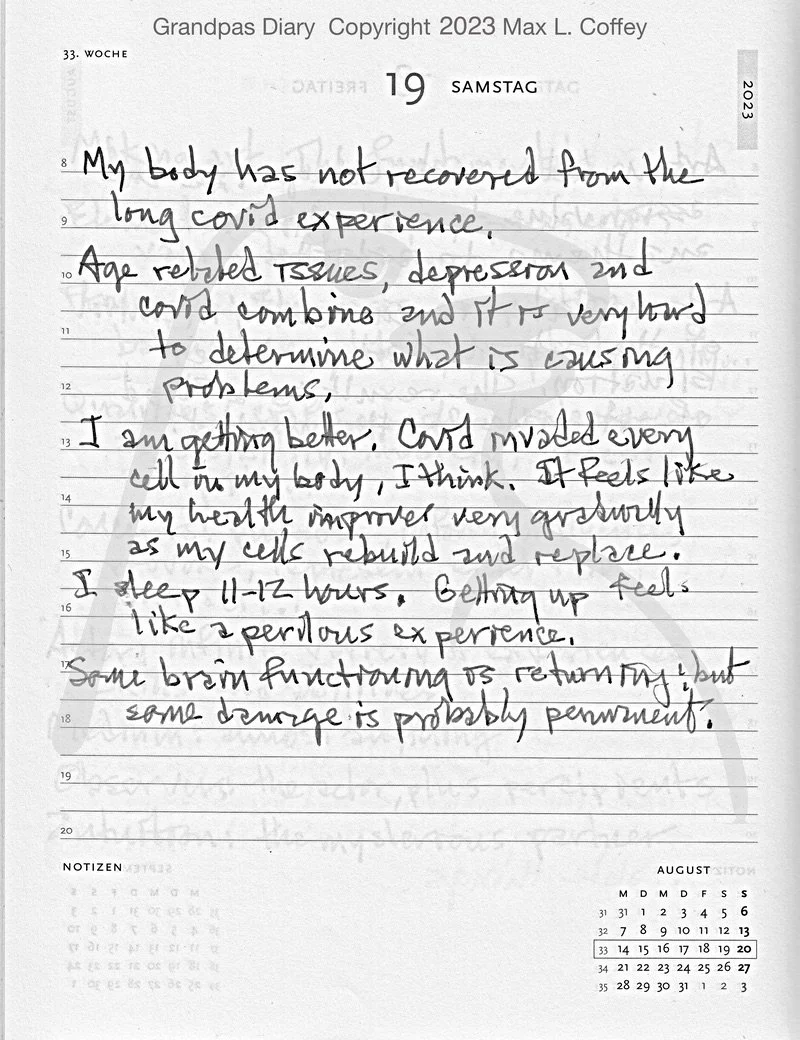 Grandpas Diary Copyright 2023 Max L. Coffey
33. WOCHE
19 SAMSTAG
2023
8 My body has not recovered from the
9 long covid experience.
10 Age related issues, depression and
covid combine and it is very hard
11 to determine what is causing
12 problems.
13 I am getting better. Covid invaded every
cell in my body, I think. It feels like
14 my health improves very gradually
15 as my cells rebuild and replace.
I sleep 11-12 hours. Getting up feels
16 like a perilous experience.
17 Some brain functioning is returning; but
18 some damage is probably permanent.
19
20
NOTIZEN
AUGUST
M D M D F S S
31 31 1 2 3 4 5 6
32 7 8 9 10 11 12 13
33 14 15 16 17 18 19 20
34 21 22 23 24 25 26 27
35 28 29 30 31 1 2 3